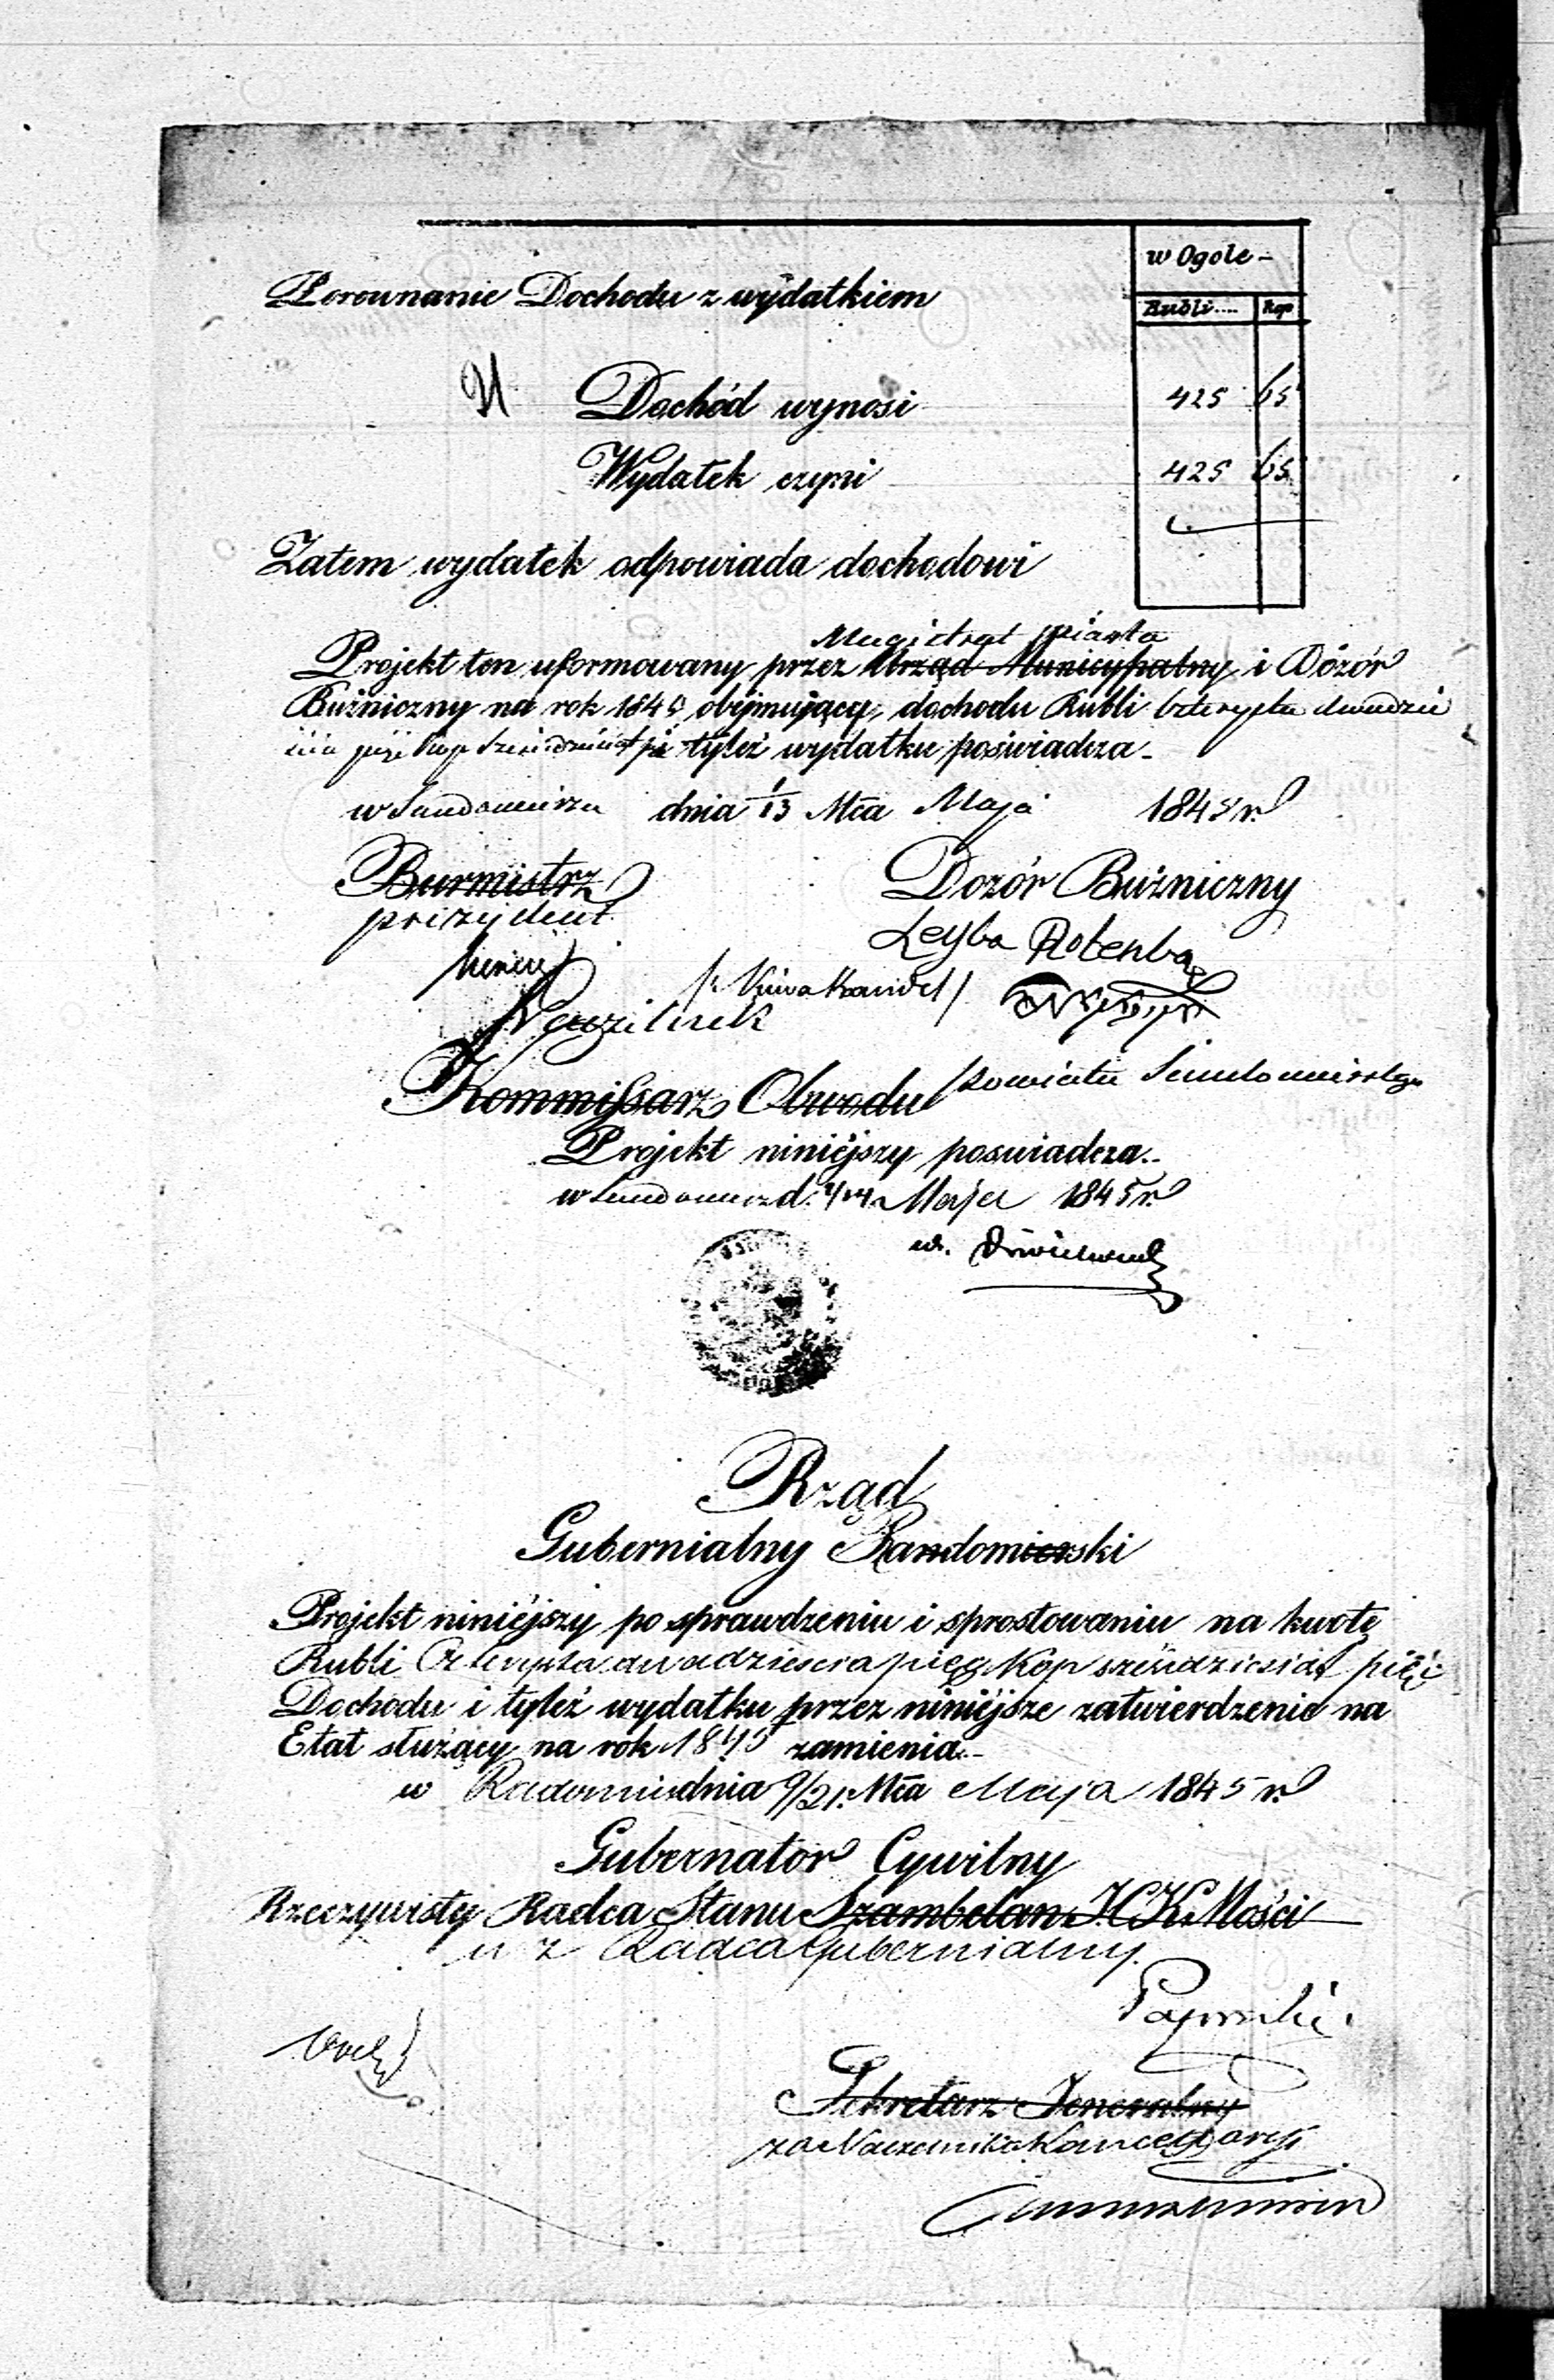 w Ogole -
Porownanie Dochodu z wydatkiem
Rubli.... Kop
Dochód wynosi 425 65
Wydatek czyni 425 65
Zatem wydatek odpowiada dochodowi
Magistrat Miasta
Projekt ten uformowany przez Urząd Municypalny i Dozór
Bużniczny na rok 1845 obejmujący, dochodu Rubli czterysta dwadzie
ścia pięć kop sześćdziesiąt pięć tyleż wydatku poświadcza -
w Sandomierzu dnia 1/13 Mca Maja 1845 r.
Burmistrz Dozór Bużniczny
prezydent
Leyba Rotenberg
Kommissarz Obwodu powiatu Sandomierskego
Projekt niniéjszy poswiadcza -
w Sandomierz d. 2/14 Maja 1845 r.
Rząd
Gubernialny Sandomierski
Projekt niniéjszy po sprawdzeniu i sprostowaniu na kwotę
Rubli Czterysta dwadzieścia pięć Kop sześćdziesiąt pięć
Dochodu i tyleż wydatku przez niniéjsze zatwierdzenie na
Etat służący na rok 1845 zamienia -
w Radomiu dnia 9/21 Mca Maja 1845 r.
Gubernator Cywilny
Rzeczywisty Radca Stanu Szambelan J.C.K. Mości
w z Radca Gubernialny.
Sekretarz Jeneralny
za Naczelnika Kancellaryi